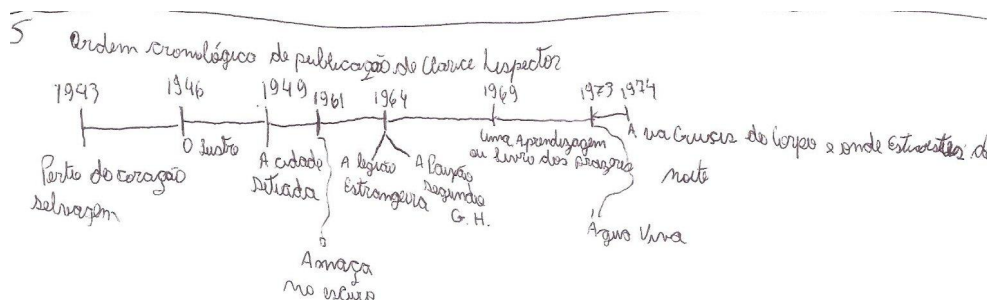 5
Ordem cronológico de publicação de Clarice Lispector
1943
1946
1949
1961
1964
1969
1973
1974
Perto do coração
selvagem
O Lustre
A cidade
sitiada
A maça
no escuro
A legião
Estrangeira
A Paixão
segundo
G. H.
Uma Aprendizagem
ou Livro dos prazeres
Água Viva
A via Crucis do Corpo e onde Estivestes de
noite